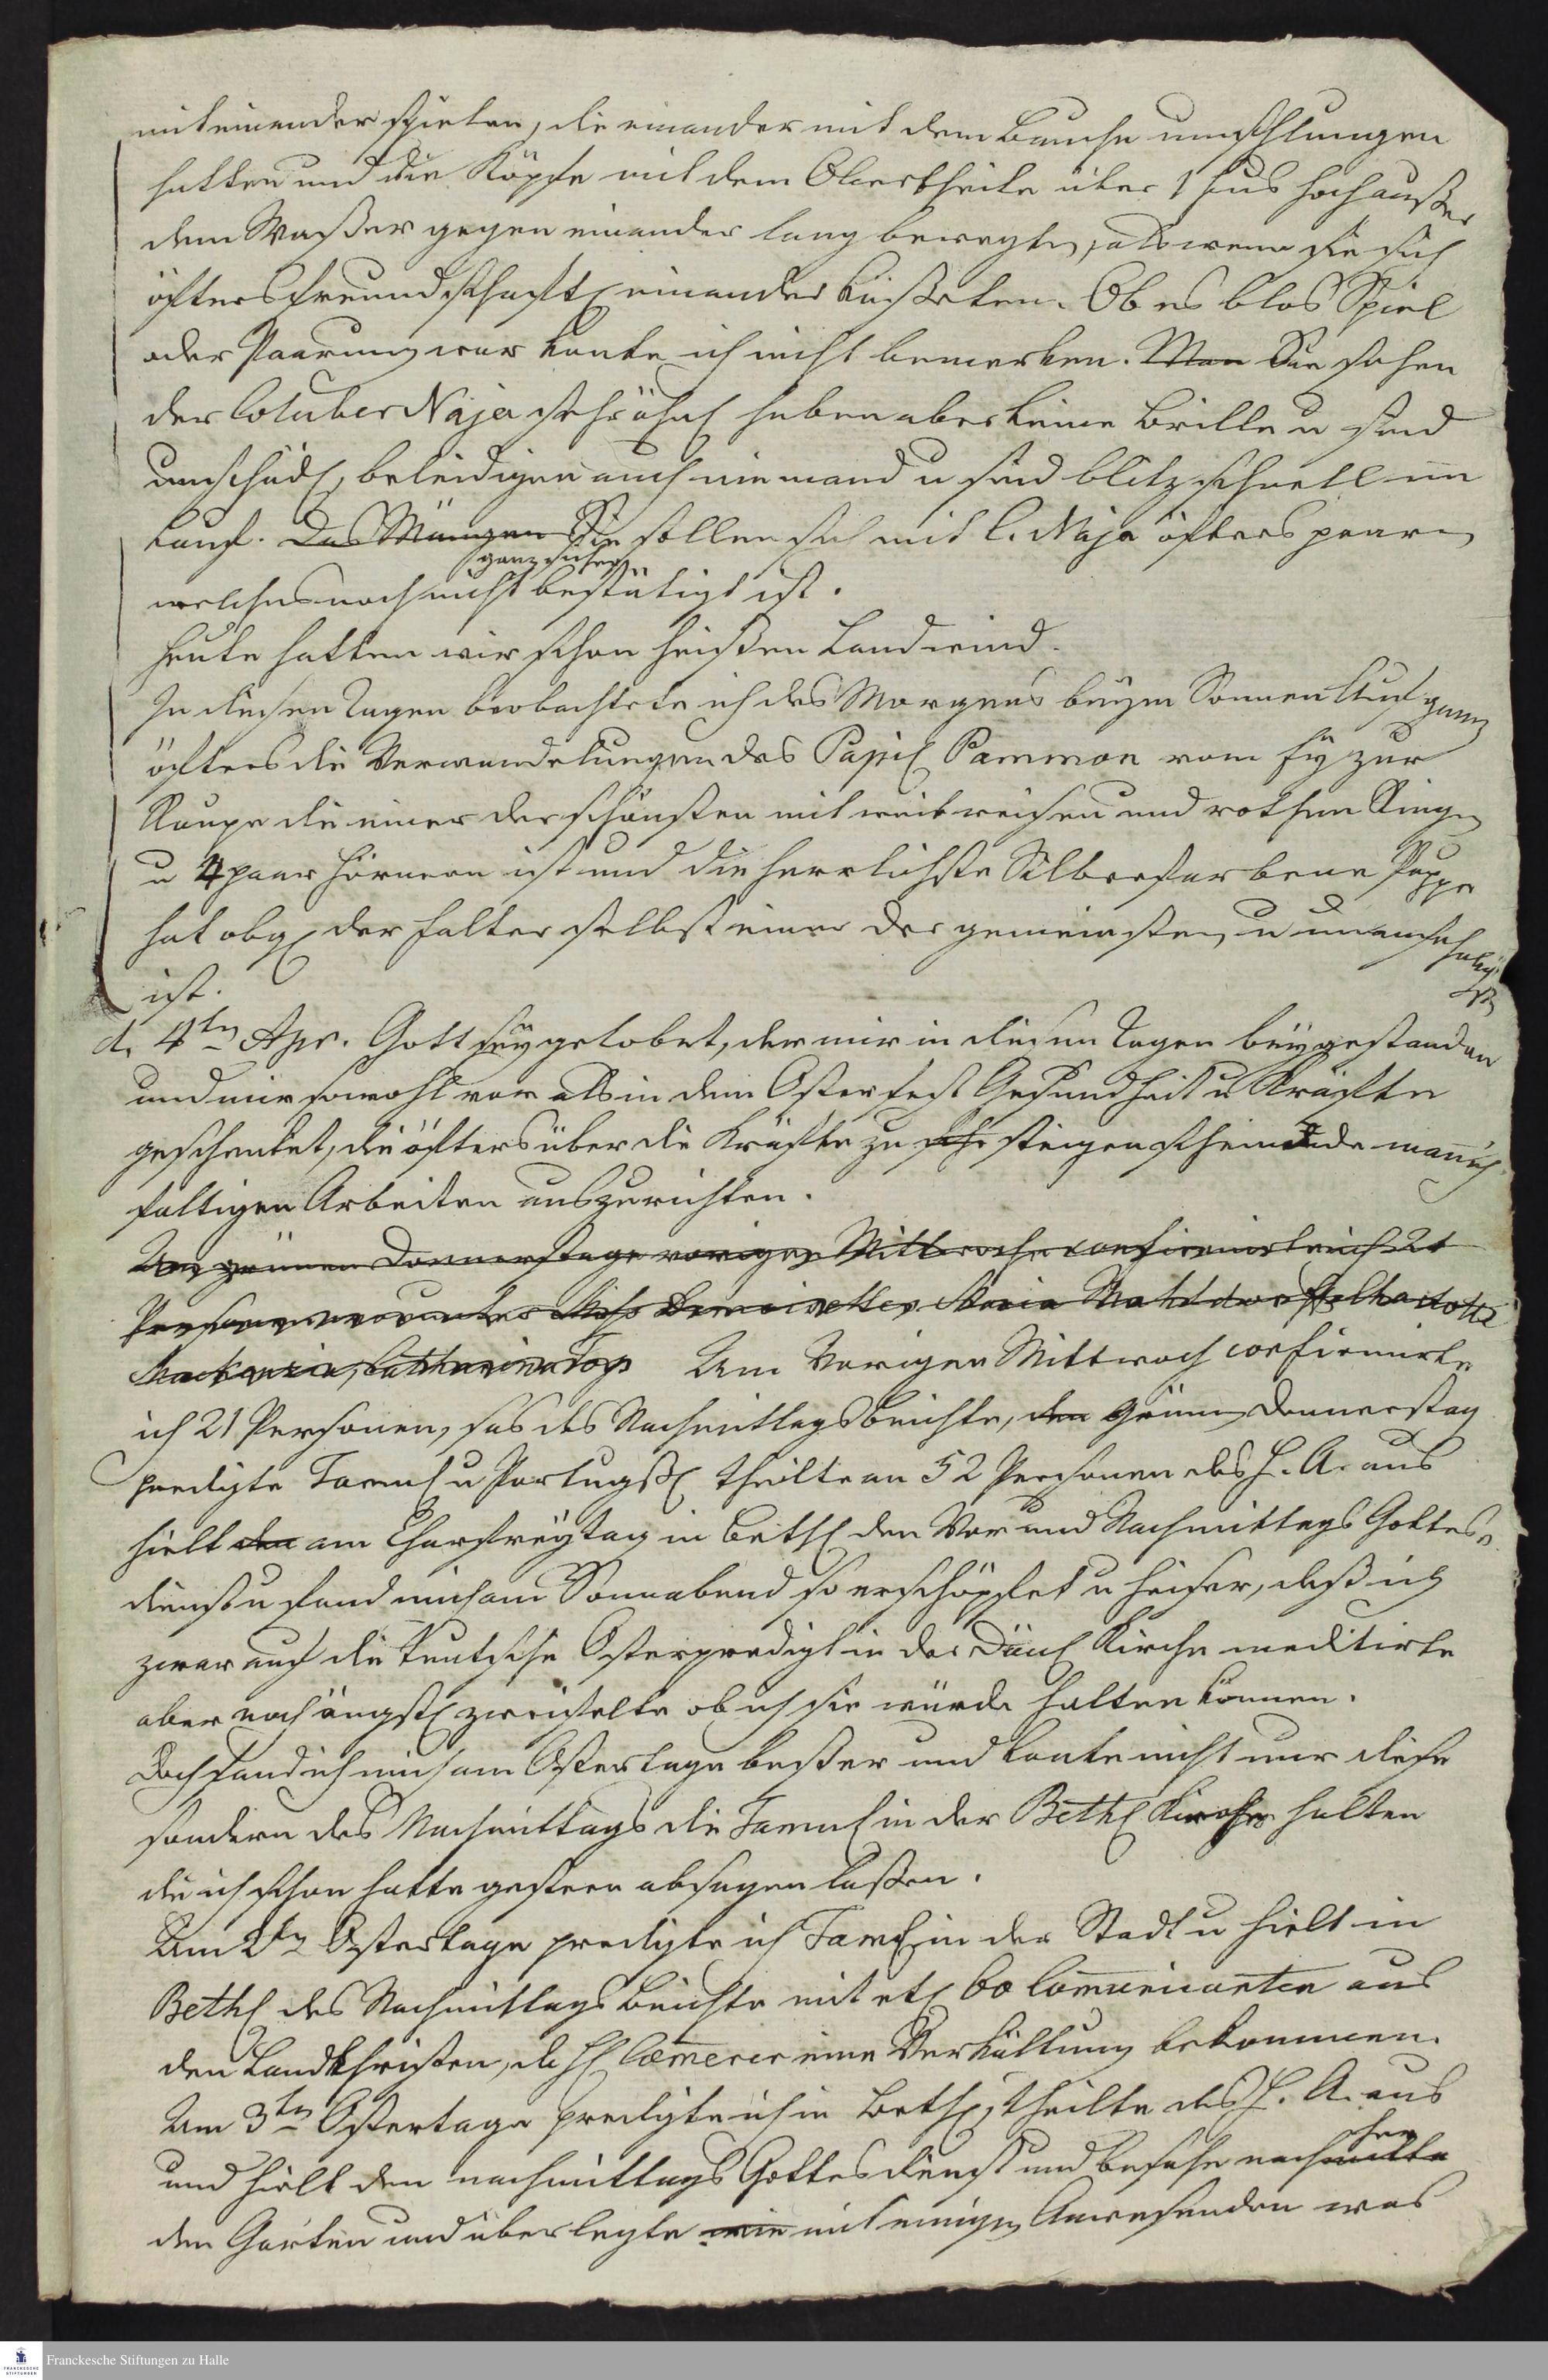 miteinander spielen, die einander mit dem Bauche umschlungen
hatten und die Köpfe mit dem Obertheile über 1 Fus hoch außer
dem Waßer gegen einander lang bewegten, als wenn sie sich
öfters freundschaftl einander küßeten. Ob es blos Spiel
oder Paarung war konte ich nicht bemerken. Man Sie sehen
der Coluber Naja sehr ähnl haben aber keine Brille u sind
unschädl, beleidigen auch niemand u sind blitzschnell im
Lauf. Das Männgen Sie sollen sich mit C. Naja öfters paaren
ganz sicher
welches noch nicht bestätigt ist.
Heute hatten wir schon heißen Landwind.
In diesen Tagen beobachtete ich des Morgens beym Sonnen Aufgang
öfters die Verwandelungen des Papil Pammon vom Ey zur
Raupe die einer der schönsten mit weißen und rothen Ringen
u 4 paar Hörnern ist und die herrlichste Silberfarbene Puppe
hat obgl der Falter selbst einer der gemeinsten u unansehnlig
sten
ist.
d. 4ten Apr. Gott sey gelobet, der mir in diesen Tagen beygestanden
und mir sowohl vor als in dem Osterfest Gesundheit u Kräfte
geschenket, die öfters über die Kräfte zu steigen scheinende mannig
faltigen Arbeiten auszurichten.
Am grünen Donnerstage vorigen Mittwoche confirmirte ich 21
Personen worunter Miss
Mackenzie, Catharina Fox Am Vorigen Mittwoch confirmirte
ich 21 Personen, sas des Nachmittags beichte, den Grünen Donnerstag
predigte Tamul u Portugsl theilte an 52 Personen das H. A. aus
hielt den am Charfreytag in Bethl den Vor und Nachmittags Gottes
dienst u fand mich am Sonnabend so erschöpfet u heiser, daß ich
zwar auf die teutsche Osterpredigt in der Dänl Kirche meditirte
aber noch ängstl zweifelte ob ich sie würde halten können.
Doch fand ich mich am Ostertage beßer und konte nicht nur diese
sondern des Nachmittags die Tamul in der Bethl Kirche halten
die ich schon hatte gestern absagen laßen.
Am 2ten Ostertage predigte ich Tamul in der Stadt u hielt in
Bethl des Nachmittags Beichte mit etl 60 Com̅unicanten aus
den Landchristen, da H Cæm̅erer eine Verkältung bekommen.
Am 3ten Ostertage predigte ich in Bethl, theilte das H. A. aus
und hielt den nachmittags Gottesdienst und besahe nachmitta
her
den Garten und überlegte wie mit einigen Anwesenden was
Franckesche Stiftungen zu Halle